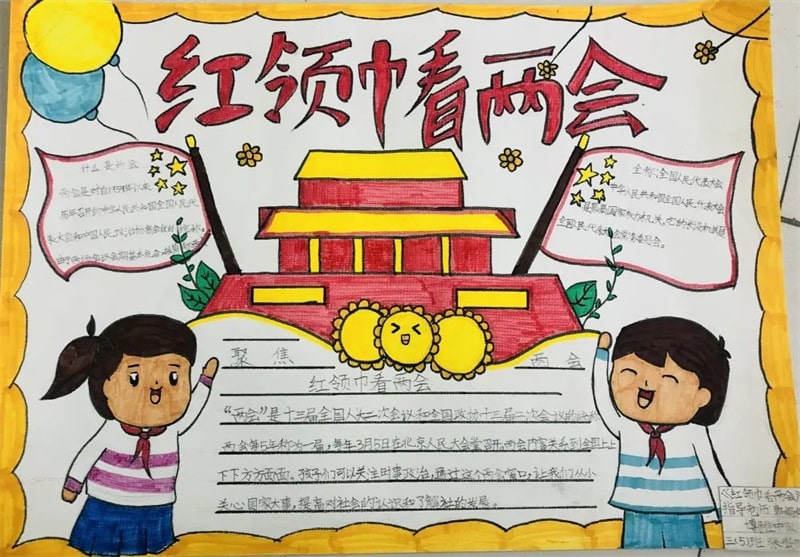 红领巾看两会
什么是两会
两会是对自1959年以来
历年召开的中华人民共和国全国人民代
表大会和中国人民政治协商会议的统称。
由于两场会议会期基本重合,
全称:全国人民代表大会
中华人民共和国全国人民代表大会
是最高国家权力机关。它的常设机关是
全国人民代表大会常务委员会。
聚焦 两会
红领巾看两会
“两会”是十三届全国人大二次会议和全国政协十三届二次会议的统称
两会每5年称为一届,每年3月5日在北京人民大会堂召开。两会内容关系到全国上上
下下方方面面。孩子们可以关注时事政治,通过这个两会窗口,让我们从小
关心国家大事,提高对社会的认识和了解社的发展。
《红领巾看两会》
指导老师
三(5)班